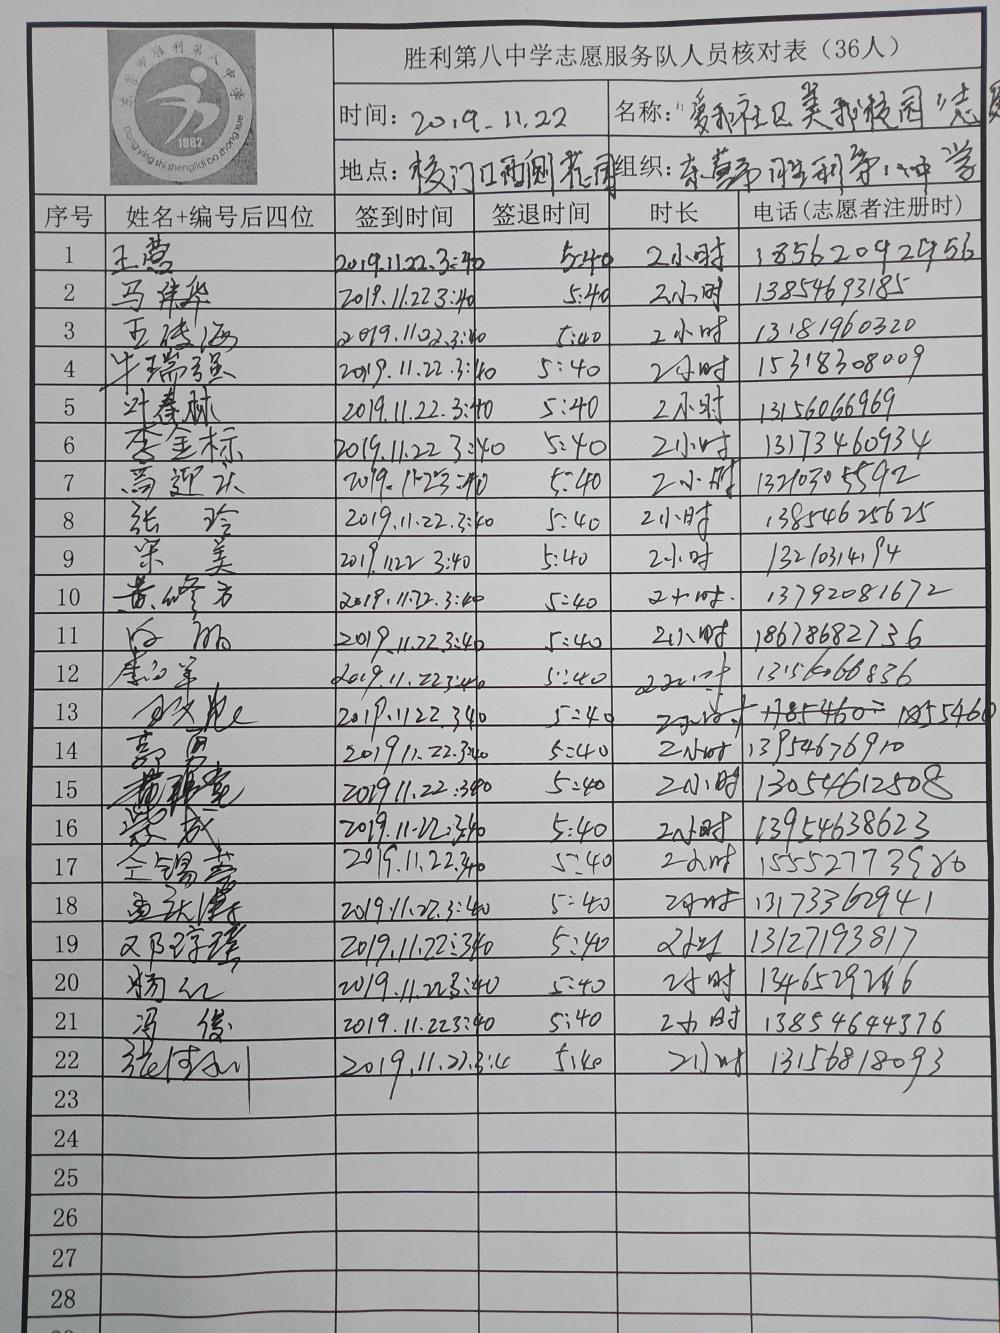 胜利第八中学志愿服务队人员核对表（36人）
东营市胜利第八中学
1982
Dongyingshishenglidibazhongxue
时间：2019.11.22 名称："爱我社区 美我校园"志愿
地点：校门口西侧花园 组织：东营市胜利第八中学
序号 姓名+编号后四位 签到时间 签退时间 时长 电话(志愿者注册时)
1 王营 2019.11.22.3:40 5:40 2小时 18562092956
2 马华 2019.11.22 3:40 5:40 2小时 13854693185
3 王海 2019.11.22.3:40 5:40 2小时 13181960320
4 牛瑞强 2019.11.22.3:40 5:40 2小时 15318308009
5 叶春林 2019.11.22.3:40 5:40 2小时 13156066969
6 李金标 2019.11.22 3:40 5:40 2小时 13173460934
7 高迎 2019.11.22 3:40 5:40 2小时 13210305592
8 张玲 2019.11.22.3:40 5:40 2小时 13854625625
9 宋美 2019.11.22 3:40 5:40 2小时
10 黄修方 2019.11.22.3:40 5:40 2小时. 13792081672
11 白丽 2019.11.22 3:40 5:40 2小时 18678682736
12 李 2019.11.22 3:40 5:40 2小时 13156066836
13 2019.11.22 3:40 5:40 2小时
14 郭勇 2019.11.22.3:40 5:40 2小时 13954676910
15 2019.11.22.3:40 5:40 2小时 13054612508
16 2019.11.22.3:40 5:40 2小时 13954638623
17 仝锡 2019.11.22.3:40 5:40 2小时 15552773980
18 2019.11.22.3:40 5:40 2小时 13173362941
19 邓 2019.11.22.3:40 5:40 2小时 13127193817
20 杨红 2019.11.22 3:40 5:40 2小时
21 冯俊 2019.11.22 3:40 5:40 2小时 13854644376
22 张 2019.11.22.3:4 5:40 2小时 13156818093
23
24
25
26
27
28